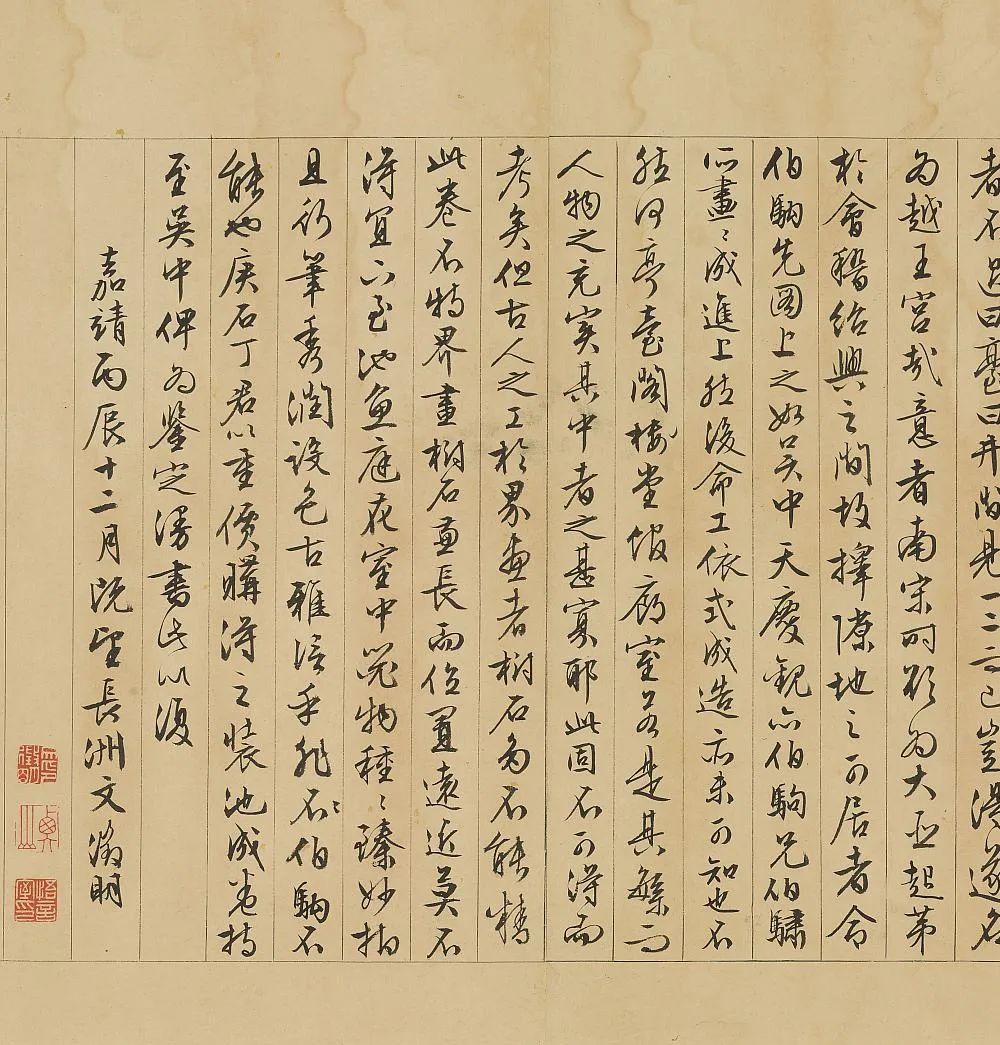 者不過曰臺曰井尚見一二而已豈得遂名
為越王宮哉意者南宋時欲為大臣起第
於會稽紹興之間故擇隙地之可居者命
伯駒先圖上之如吳中天慶觀亦伯駒兄伯驌
所畫〻成進上然後命工依式成造亦未可知也不
然何亭臺閣樓堂館廊室若是其繁而
人物之充實其中者之甚寡耶此固不可得而
考矣但古人之工於界畫者樹石多不能精
此卷不特界畫樹石兼長而位置遠近莫不
得宜下至池魚庭花室中器物種〻臻妙抑
且行筆秀潤設色古雅信乎非不伯駒不
能也庚石丁君以重價購得之裝池成卷持
至吳中俾為鑒定漫書此以復
嘉靖丙辰十二月既望長洲文徵明
衡山
悟言室印